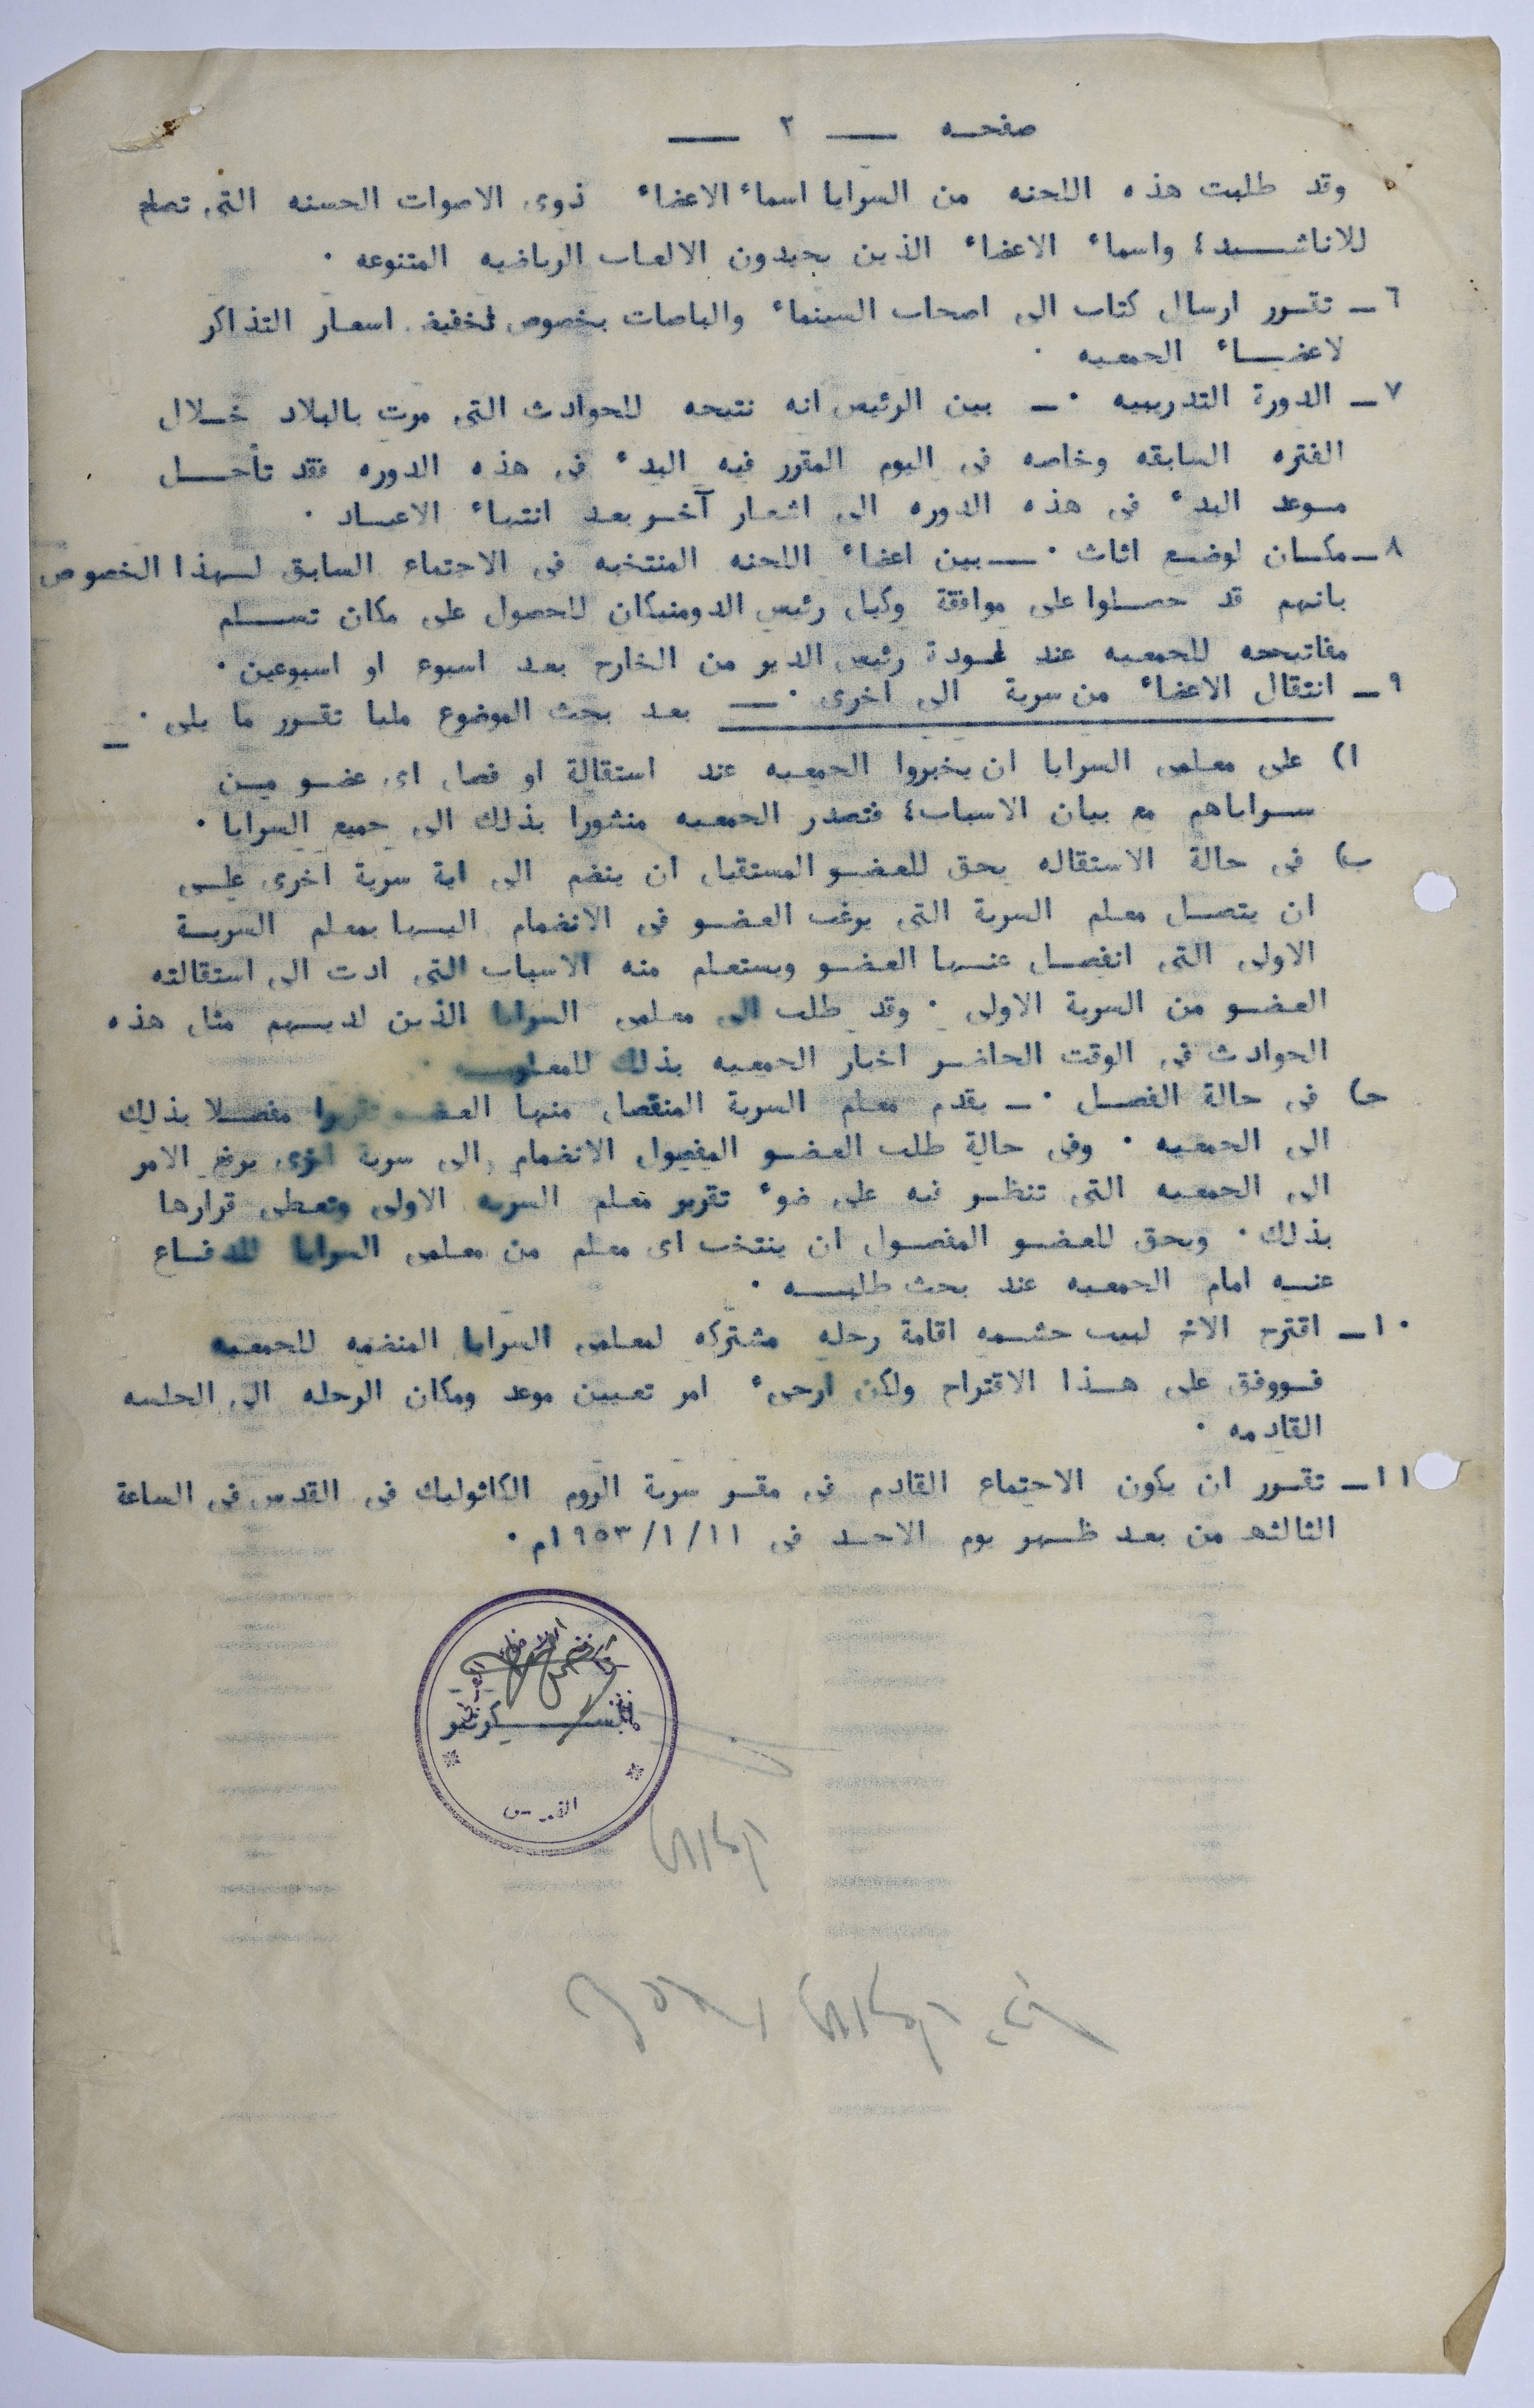 صفحـه — ٢ —
وقد طلبت هذه اللجنه من السرايا اسماء الاعضاء ذوى الاصوات الحسنه التى تصلح
للاناشــيد؛ واسماء الاعضاء الذين يجيدون الالعاب الرياضيه المتنوعه ٠
٦ـ تقـرر ارسال كتاب الى اصحاب السينماء والباصات بخصوص تخفيض اسعـار التذاكر
لاعضـاء الجمعيه ٠
٧ـ الدورة التدريبيه ٠ـ بين الرئيس انه نتيجه للحوادث التى مرت بالبلاد خـلال
الفتره السابقه وخاصه فى اليوم المقرر فيه البدء فى هذه الدوره فقد تأجـل
مـوعد البدء فى هذه الدوره الى اشعار آخـر بعد انتهاء الاعيـاد ٠
٨ـ مكـان لوضع اثاث ٠ــ بين اعضاء اللجنه المنتخبه فى الاجتماع السابق لـهذا الخصوص
بانهم قد حصـلوا على موافقة وكيل رئيس الدومنيكان للحصول على مكان تسـلم
مفاتيحه للجمعيه عند عـودة رئيس الدير من الخارج بعد اسبوع او اسبوعين ٠
٩ـ انتقال الاعضاء من سرية الى اخرى ٠ــ بعد بحث الموضوع مليا تقـرر ما يلى ٠ـ
ا) على معلمى السرايا ان يخبروا الجمعيه عند استقالة او فصل اى عضـو مـن
سـراياهم مع بيان الاسباب؛ فتصدر الجمعيه منشورا بذلك الى جميع السرايا ٠
ب) فى حالة الاستقاله يحق للعضـو المستقيل ان ينضم الى اية سرية اخرى علـى
ان يتصـل معلم السرية التى يرغب العضـو فى الانضمام اليـها بمعلم السريـة
الاولى التى انفصـل عنـها العضـو ويستعلم منه الاسباب التى ادت الى استقالته
العضـو من السرية الاولى ٠ وقد طلب الى معلمى السرايا الذين لديـهم مثل هذه
الحوادث فى الوقت الحاضـر اخبار الجمعيه بذلك للمعلوميـه ٠
حـ) فى حالة الفصـل ٠ـ يقدم معلم السرية المنفصل منها العضـو تقريرا مفصـلا بذلك
الى الجمعيه ٠ وفى حالة طلب العضـو المفصول الانضمام الى سرية اخرى يرفع الامر
الى الجمعيه التى تنظـر فيه على ضوء تقرير معلم السريه الاولى وتعطى قرارها
بذلك ٠ ويحق للعضـو المفصـول ان ينتخب اى معلم من معلمى السرايا للدفـاع
عنـه امام الجمعيه عند بحث طلبـه ٠
١٠ـ اقترح الاخ لبيب حشـمه اقامة رحله مشتركه لمعلمى السرايا المنضمه للجمعيه
فـووفق على هـذا الاقتراح ولكن ارجىء امر تعـيين موعد ومكان الرحله الى الجلسه
القادمه ٠
١١ـ تقـرر ان يكون الاجتماع القادم فى مقـر سرية الروم الكاثوليك فى القدس فى الساعة
الثالثه من بعد ظـهر يوم الاحـد فى ١٩٥٣/١/١١م ٠
السـكرتير
القدس